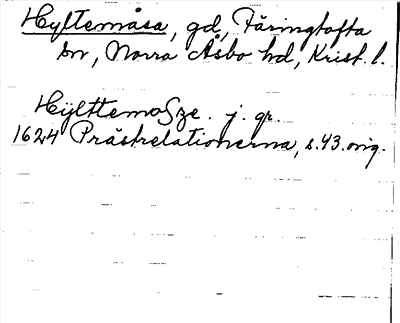 Hyltemåsa, gd, Färingtofta
sn, Norra Åsbo hd, Krist. l.
Hÿlttemoße. j. gr.
1624 Prästrelationerna, s. 43. orig.